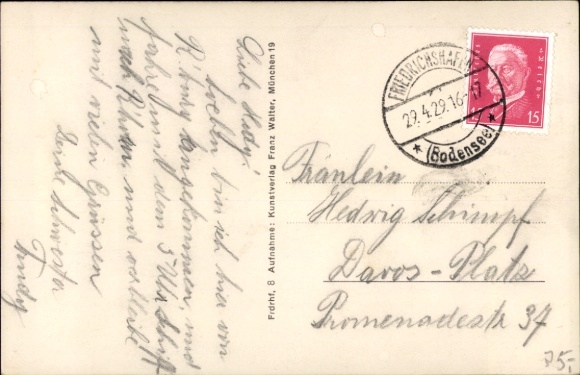 Liebe Hedy!
Soeben bin ich hier von
R'burg angekommen, und
fahre mit dem 5 Uhr Schiff
nach Rh und verbleibe
mit vielen Grüssen
Deine Schwester
Trudy
Frdrhf, 8 Aufnahme: Kunstverlag Franz Walter, München 19
FRIEDRICHSHAFEN
29.4.29.16-17
(Bodensee)
15
Fräulein
Hedwig Schimpf
Davos-Platz
Promenadestr 37
75,-